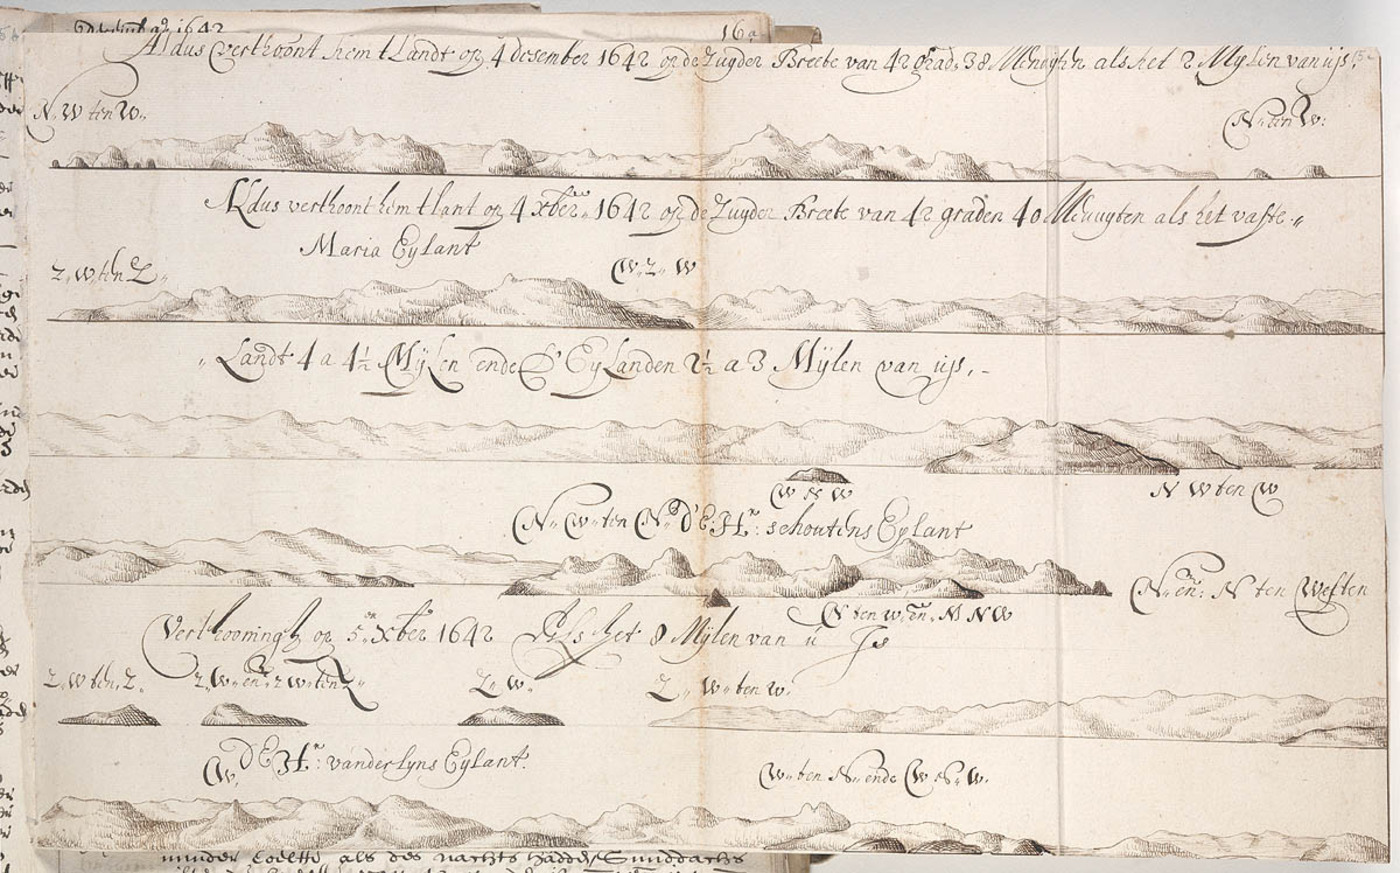 1642
16a
Aldus verthoont hem t Landt op 4 desember 1642 op de Zuyder Breete van 42 grad. 38 Menuyten als het 2 Mylen van ijs.
N. W ten W.
N. ten W.
Aldus verthoont hem t lant op 4 xber. 1642 op de Zuyder Breete van 42 graden 40 Menuyten als het vaste
Maria Eylant
Z. W. ten Z.
W. Z. W
Landt 4 a 4½ Mijlen ende d' Eylanden 2½ a 3 Mijlen van ijs.
W N W
N W ten W
N. W. ten N. d'E. Hr: schoutens Eylant
N. en: N ten Westen
N ten W. en. N N W
Verthooningh op 5en Xber 1642 Als het 8 Mijlen van ijs
Z. W ten. Z.
Z. W. en. Z W. ten Z.
Z. W.
Z. W. ten W.
W. d'E. Hr: vanderlyns Eylant.
W. ten N. ende W. N. W.
minder als des nachts hadden Sanddachs